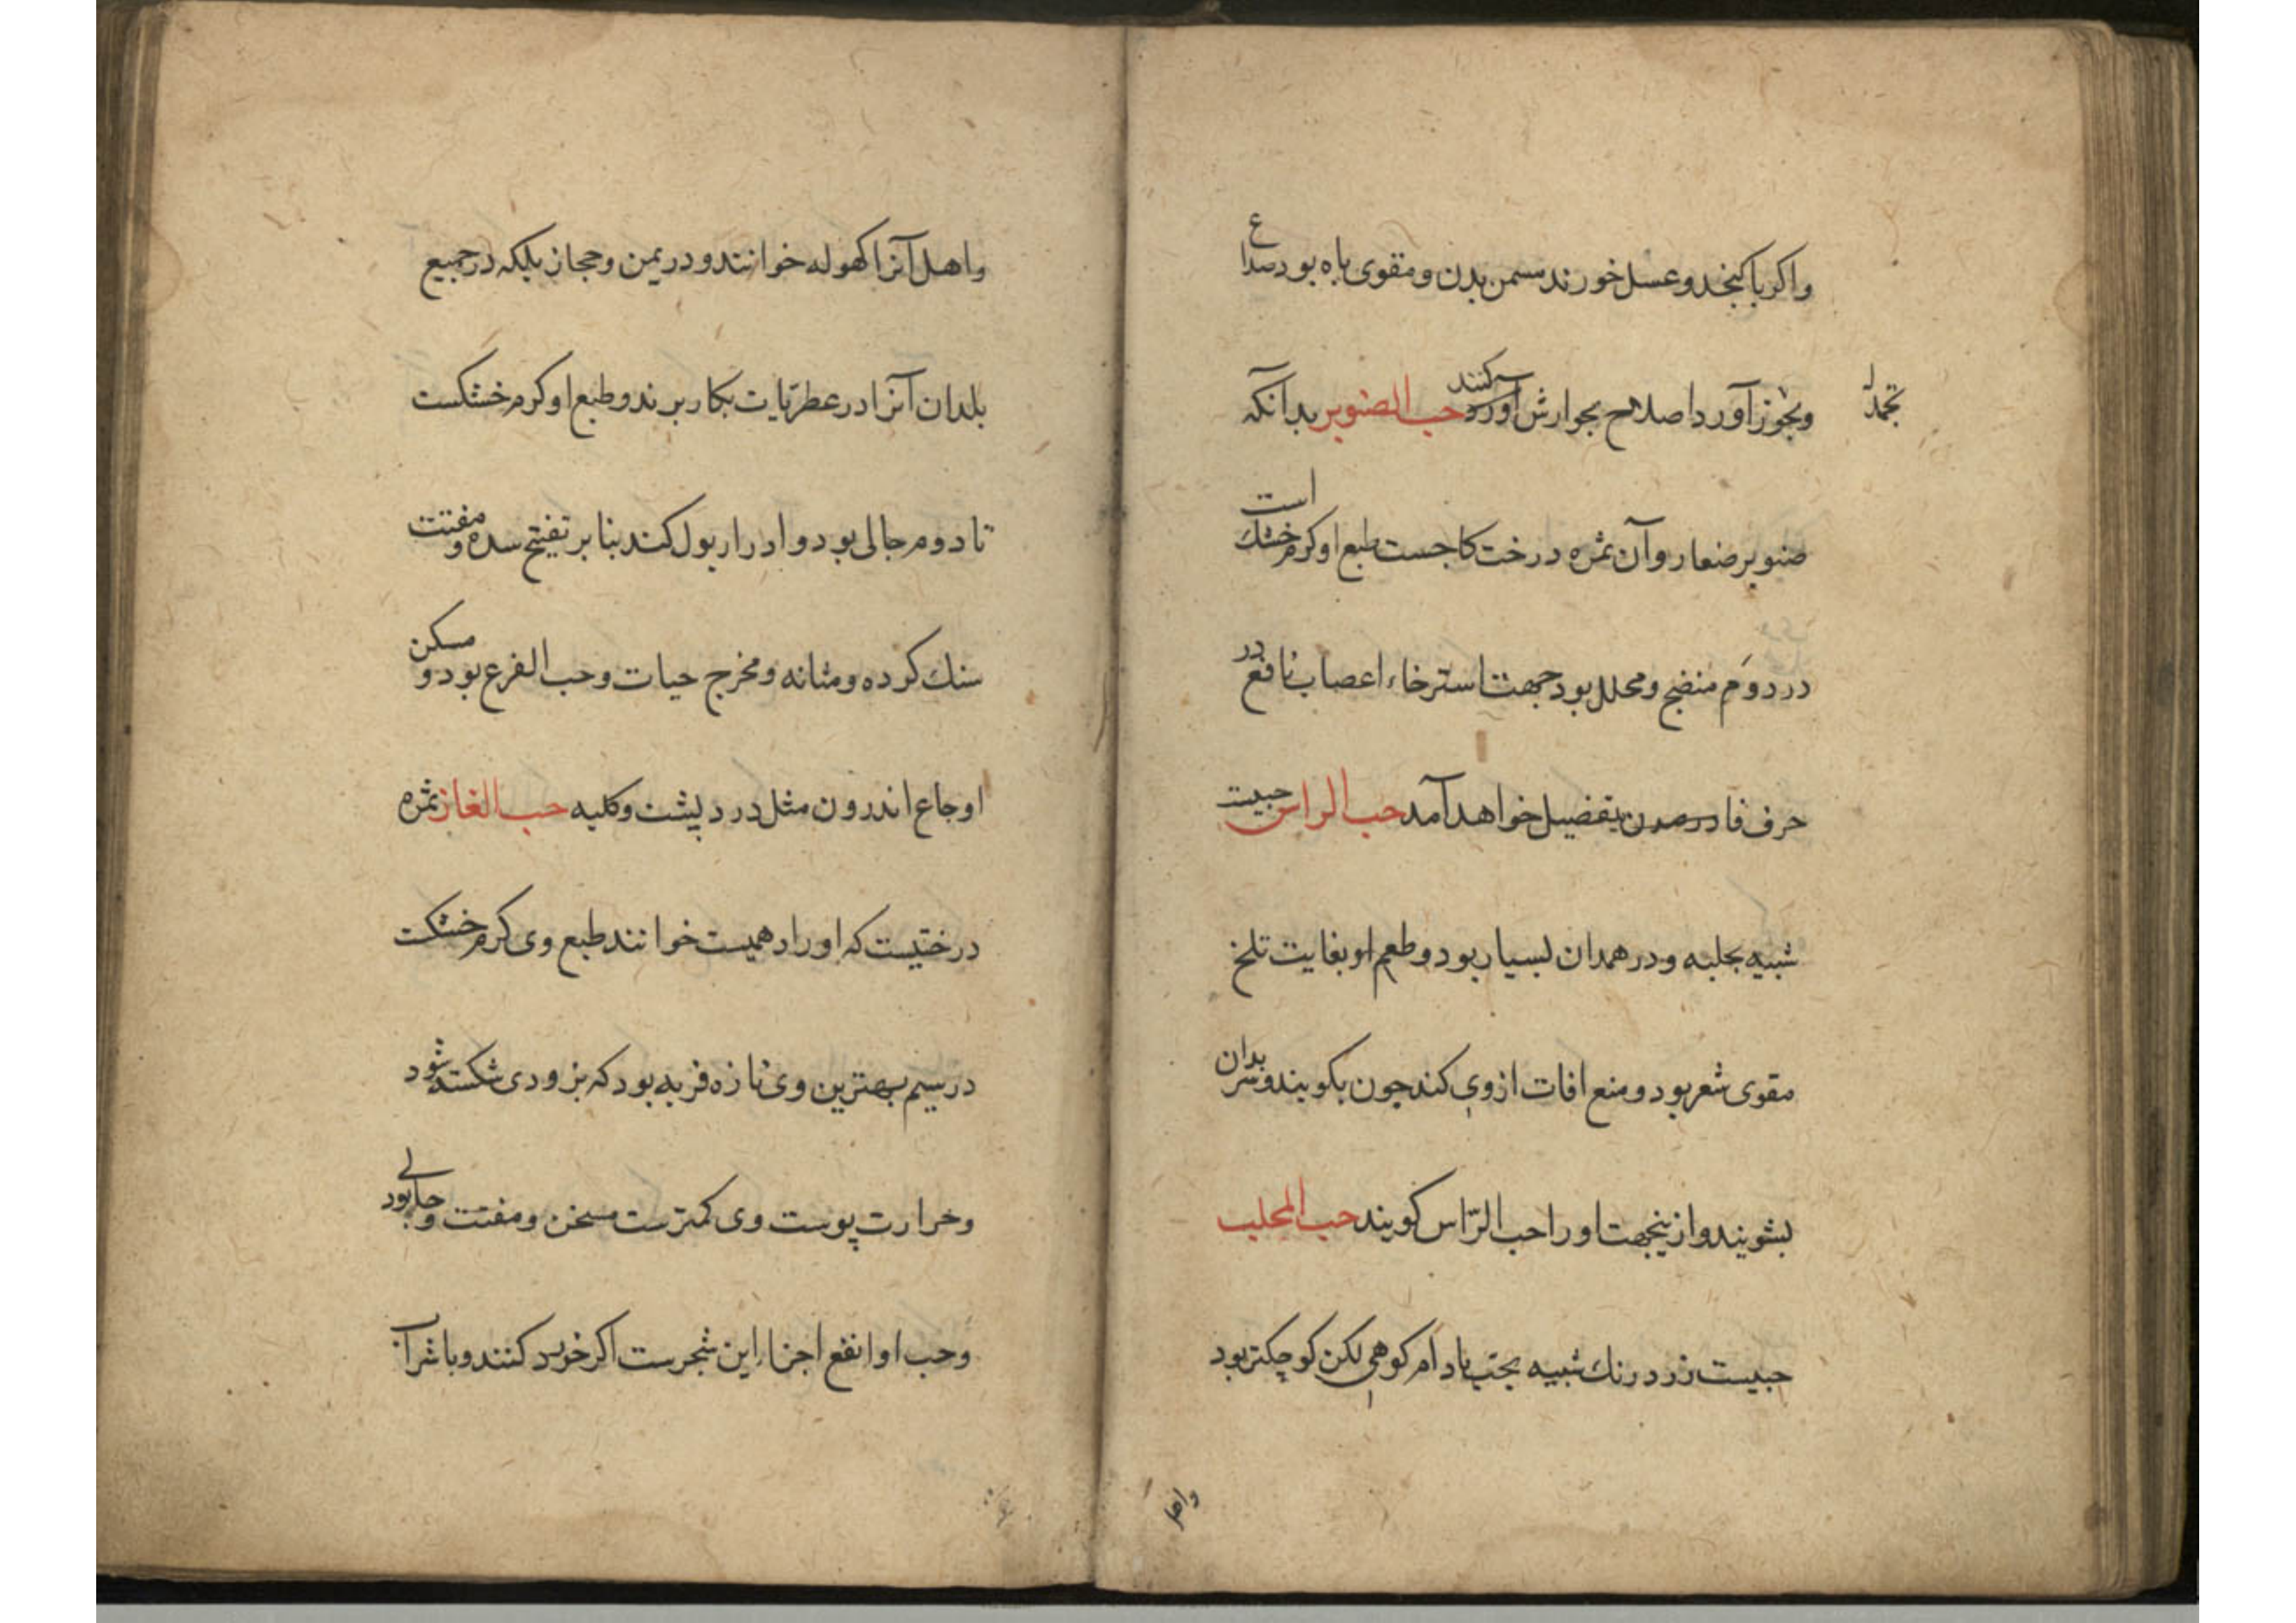 واكر باكنجد و عسل خورند مسمن بدن و مقوى باه بود صداع
و بجوز آورد اصلاح بجوارش آورد كنند حب الصنوبر بدآنكه
صنوبر صغار و آن ثمره درخت كاجست طبع او كرم خشك است
در دوم منضج و محلل بود جهت استرخاء اعصاب نافع در
حرف فا بتفضيل خواهد آمد حب الراس حبيت
شبيه بحلبه و در همدان بسيار بود و طعم او بغايت تلخ
مقوى شعر بود و منع افات از وى كند چون بكويند و سر بدان
بشويند و ازينجهت او را حب الرّاس كويند حب المحلب
حبيست زرد رنك شبيه بحب بادام كوهى لكن كوچكتر بود
واهل
واهل آنرا كهوله خوانند و در يمن و حجاز بلكه در جميع
بلدان آنرا در عطريّات بكار برند و طبع او كرم خشكست
تا دوم جالى بود و ادرار بول كند بنا بر تفتيح سده و مفتت
سنك كرده و مثانه و مخرج حيات و حب القرع بود و مسكن
اوجاع اندرون مثل درد پشت و كليه حب الغاز ثمره
درختيست كه او را دهميست خوانند طبع وى كرم خشكت
در سيم بهترين وى تازه فربه بود كه بزودى شكسته شود
و حرارت پوست وى كمترست مسخن و مفتت و جالى بود
و حب او انفع اجزاء اين شجرست اكر خورد كنند و با شراب